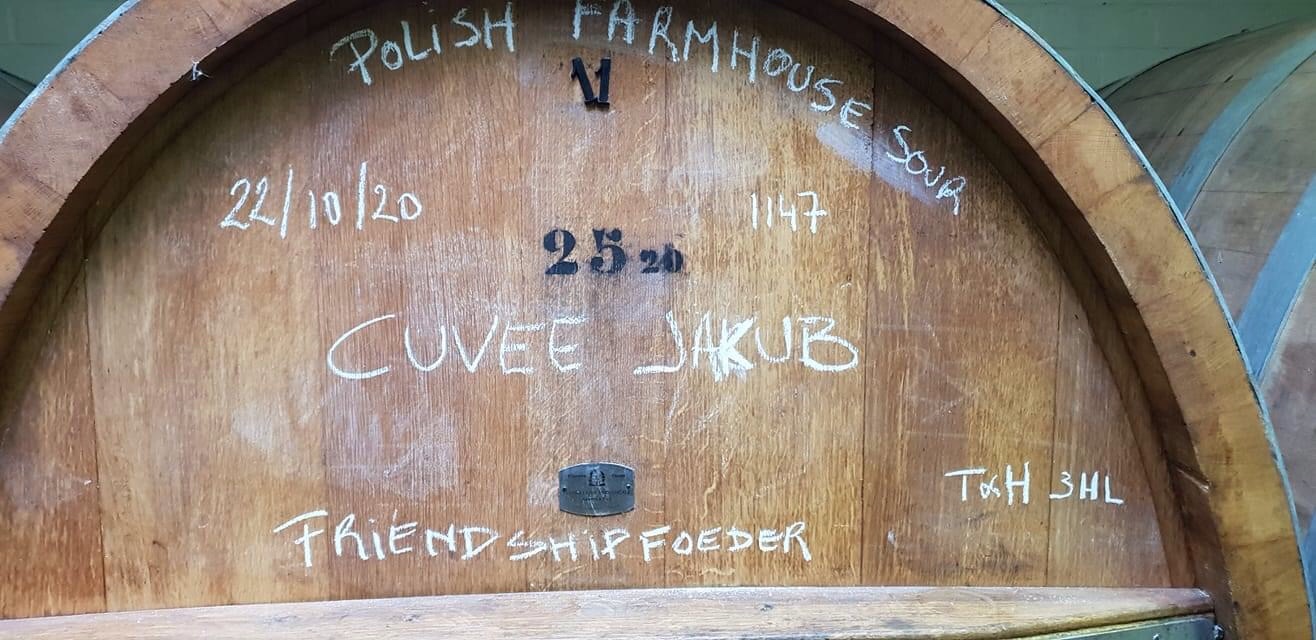 POLISH FARMHOUSE SOUR
22/10/20
1147
25 20
CUVEE JAKUB
T&H 3HL
FRiENDSHiP FOEDER